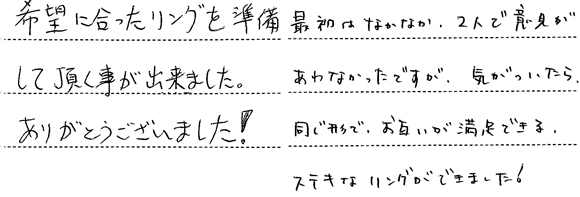 希望に合ったリングを準備
して頂く事が出来ました。
ありがとうございました!
最初はなかなか、2人で意見が
あわなかったですが、気がついたら、
同じ形で、お互いが満足できる、
ステキなリングができました!